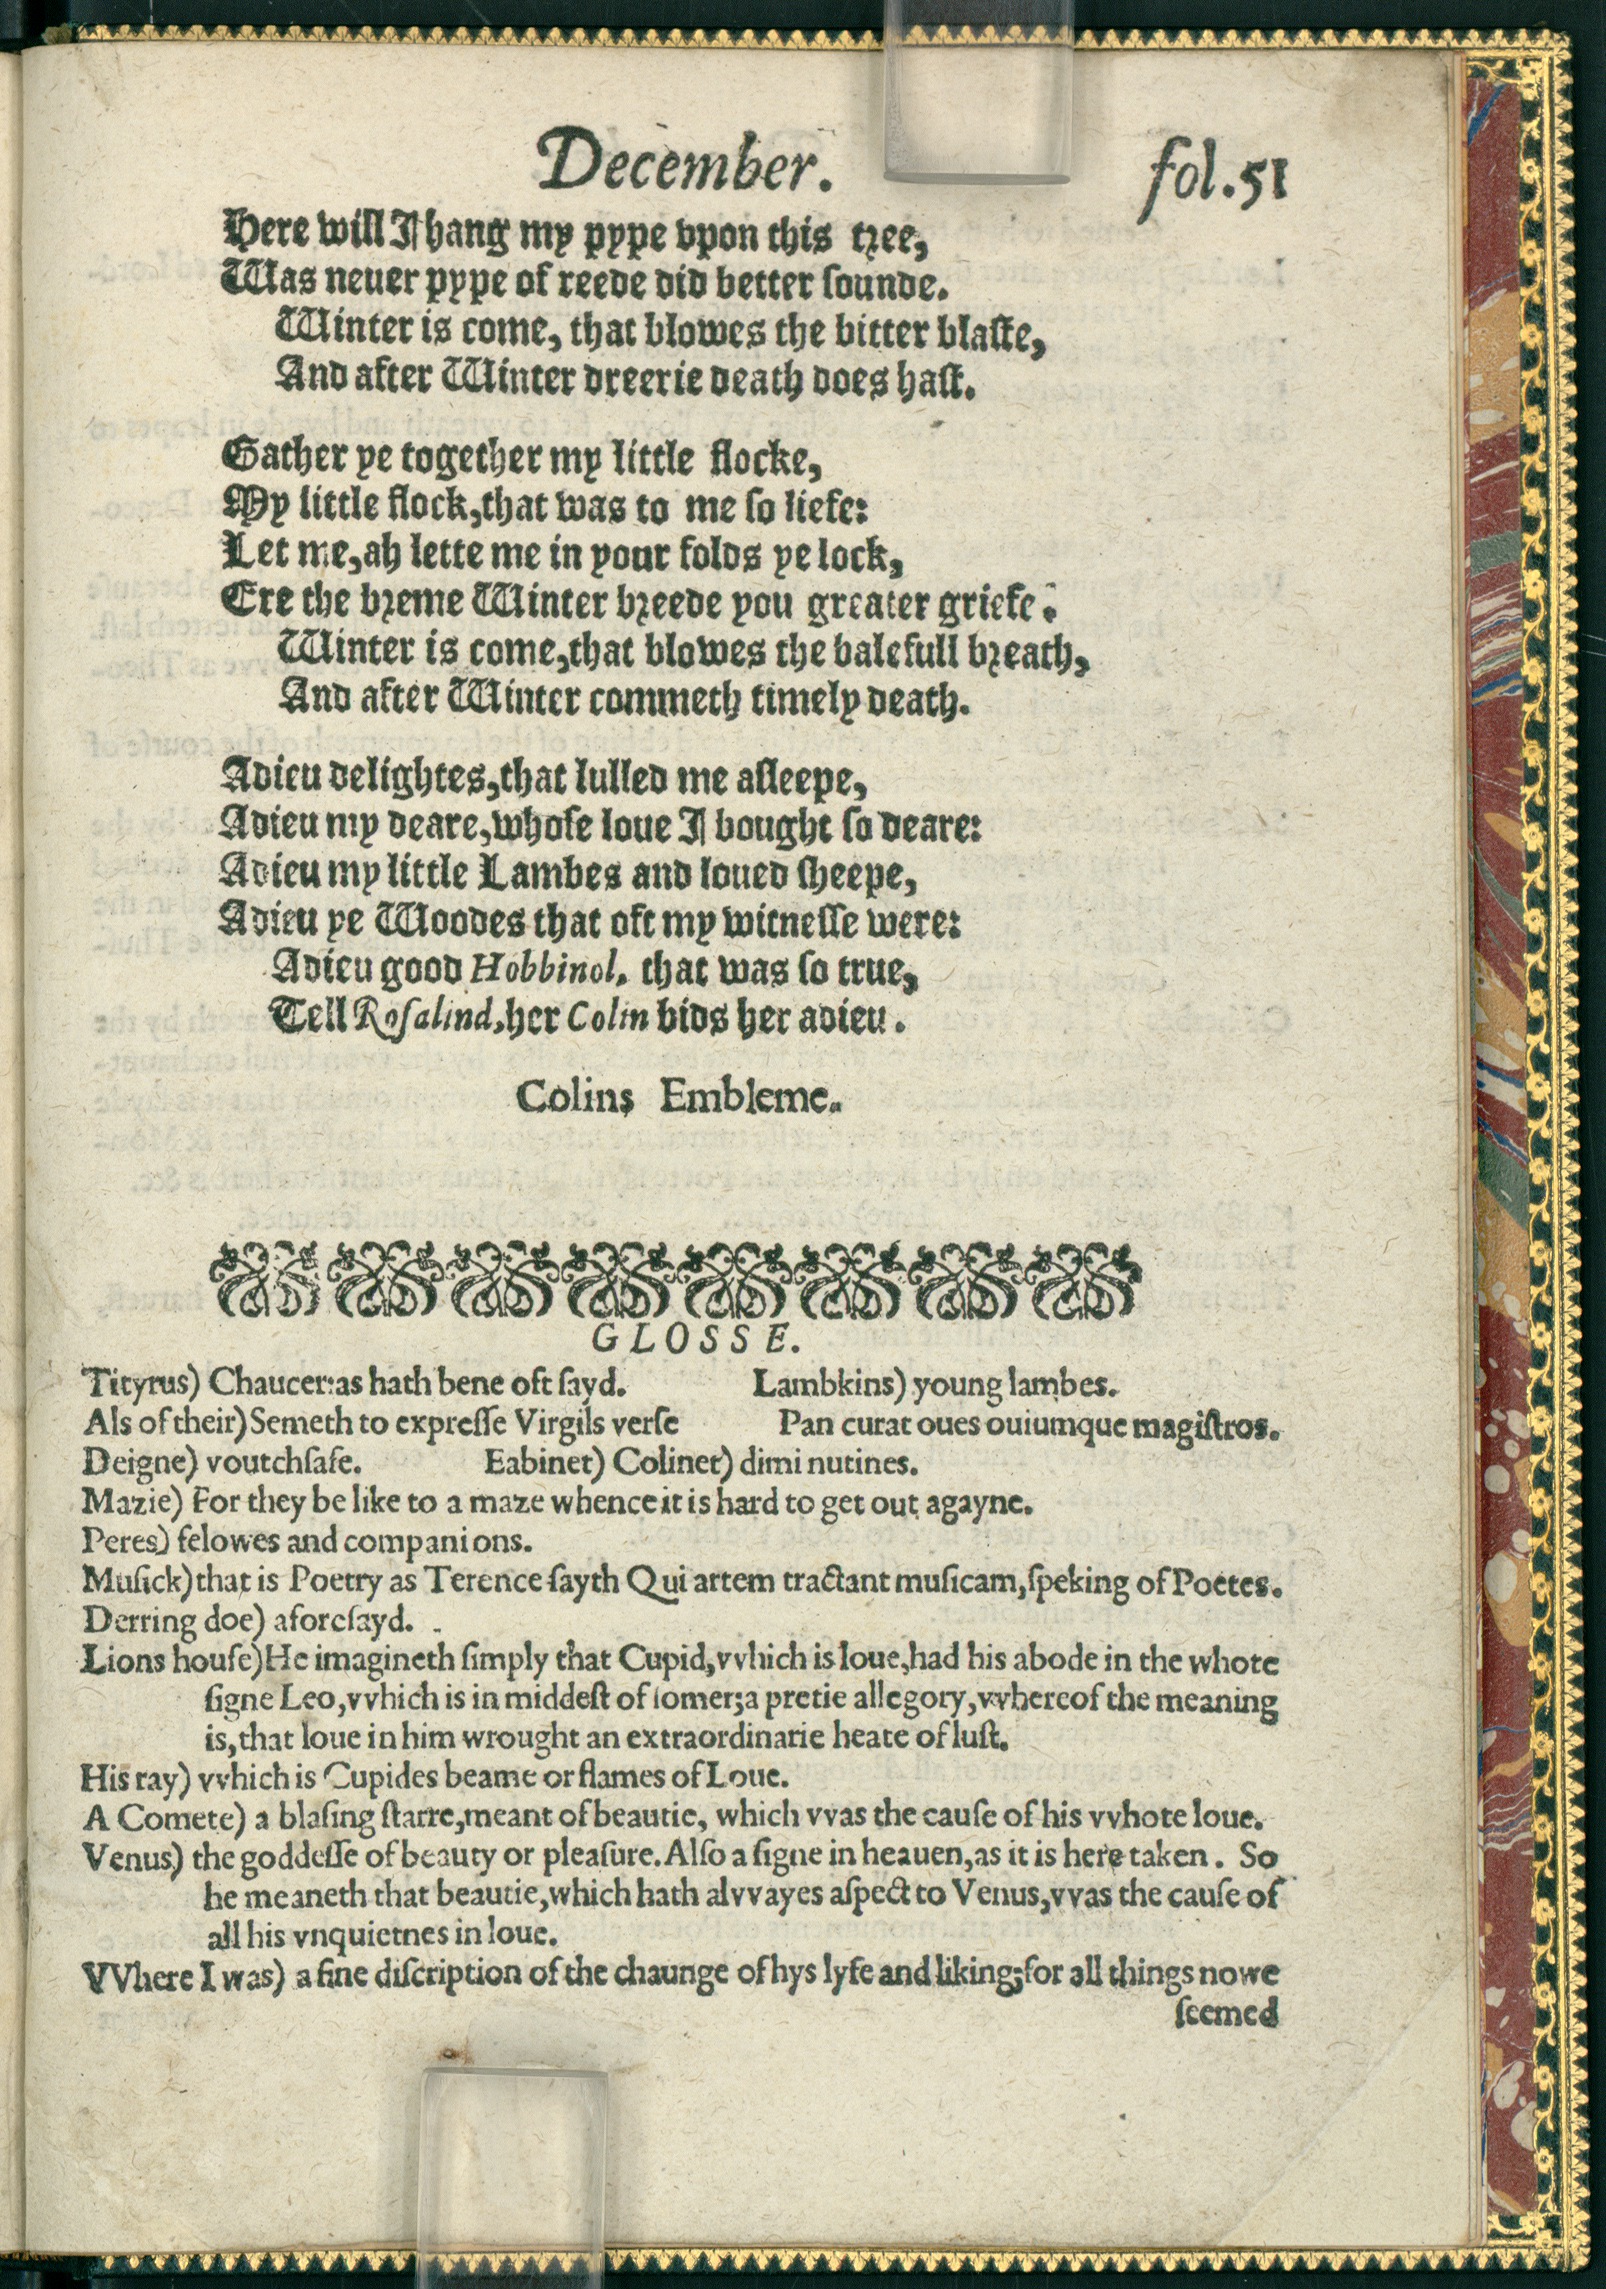 December. fol.51
Here will I hang my pype vpon this tree,
Was neuer pype of reede did better ſounde.
Winter is come, that blowes the bitter blaſte,
And after Winter dreerie death does haſt.
Gather ye together my little flocke,
My little flock, that was to me ſo liefe:
Let me, ah lette me in your folds ye lock,
Ere the breme Winter breede you greater griefe.
Winter is come, that blowes the balefull breath,
And after Winter commeth timely death.
Adieu delightes, that lulled me aſleepe,
Adieu my deare, whoſe loue I bought ſo deare:
Adieu my little Lambes and loued ſheepe,
Adieu ye Woodes that oft my witneſſe were:
Adieu good Hobbinol, that was ſo true,
Tell Roſalind, her Colin bids her adieu.
Colins Embleme.
GLOSSE.
Tityrus) Chaucer: as hath bene oft ſayd. Lambkins) young lambes.
Als of their) Semeth to expreſſe Virgils verſe Pan curat oues ouiumque magiſtros.
Deigne) voutchſafe. Eabinet) Colinet) diminutines.
Mazie) For they be like to a maze whence it is hard to get out agayne.
Peres) felowes and companions.
Muſick) that is Poetry as Terence ſayth Qui artem tractant muſicam, ſpeking of Poetes.
Derring doe) aforeſayd.
Lions houſe) He imagineth ſimply that Cupid, vvhich is loue, had his abode in the whote
ſigne Leo, vvhich is in middeſt of ſomer; a pretie allegory, vvhereof the meaning
is, that loue in him wrought an extraordinarie heate of luſt.
His ray) vvhich is Cupides beame or flames of Loue.
A Comete) a blaſing ſtarre, meant of beautie, which vvas the cauſe of his vvhote loue.
Venus) the goddeſſe of beauty or pleaſure. Alſo a ſigne in heauen, as it is here taken. So
he meaneth that beautie, which hath alvvayes aſpect to Venus, vvas the cauſe of
all his vnquietnes in loue.
VVhere I was) a fine diſcription of the chaunge of hys lyfe and liking; for all things nowe
ſeemed